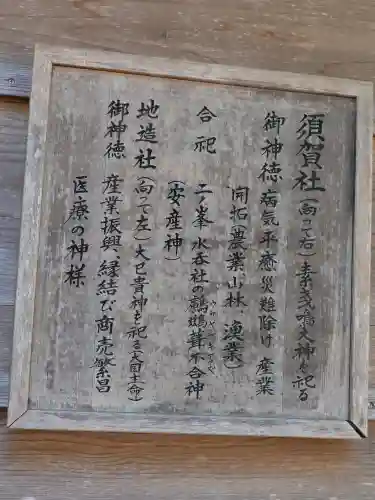 須賀社(向って右)素戔嗚大神を祀る
御神徳 病気平癒 災難除け 産業
開拓(農業山林、漁業)
合祀 二ノ峯 水呑社の鸕鷀葺不合神
(安産神)
地造社(向って左)大己貴神を祀る(大国主命)
御神徳 産業振興、縁結び 商売繁昌
医療の神様